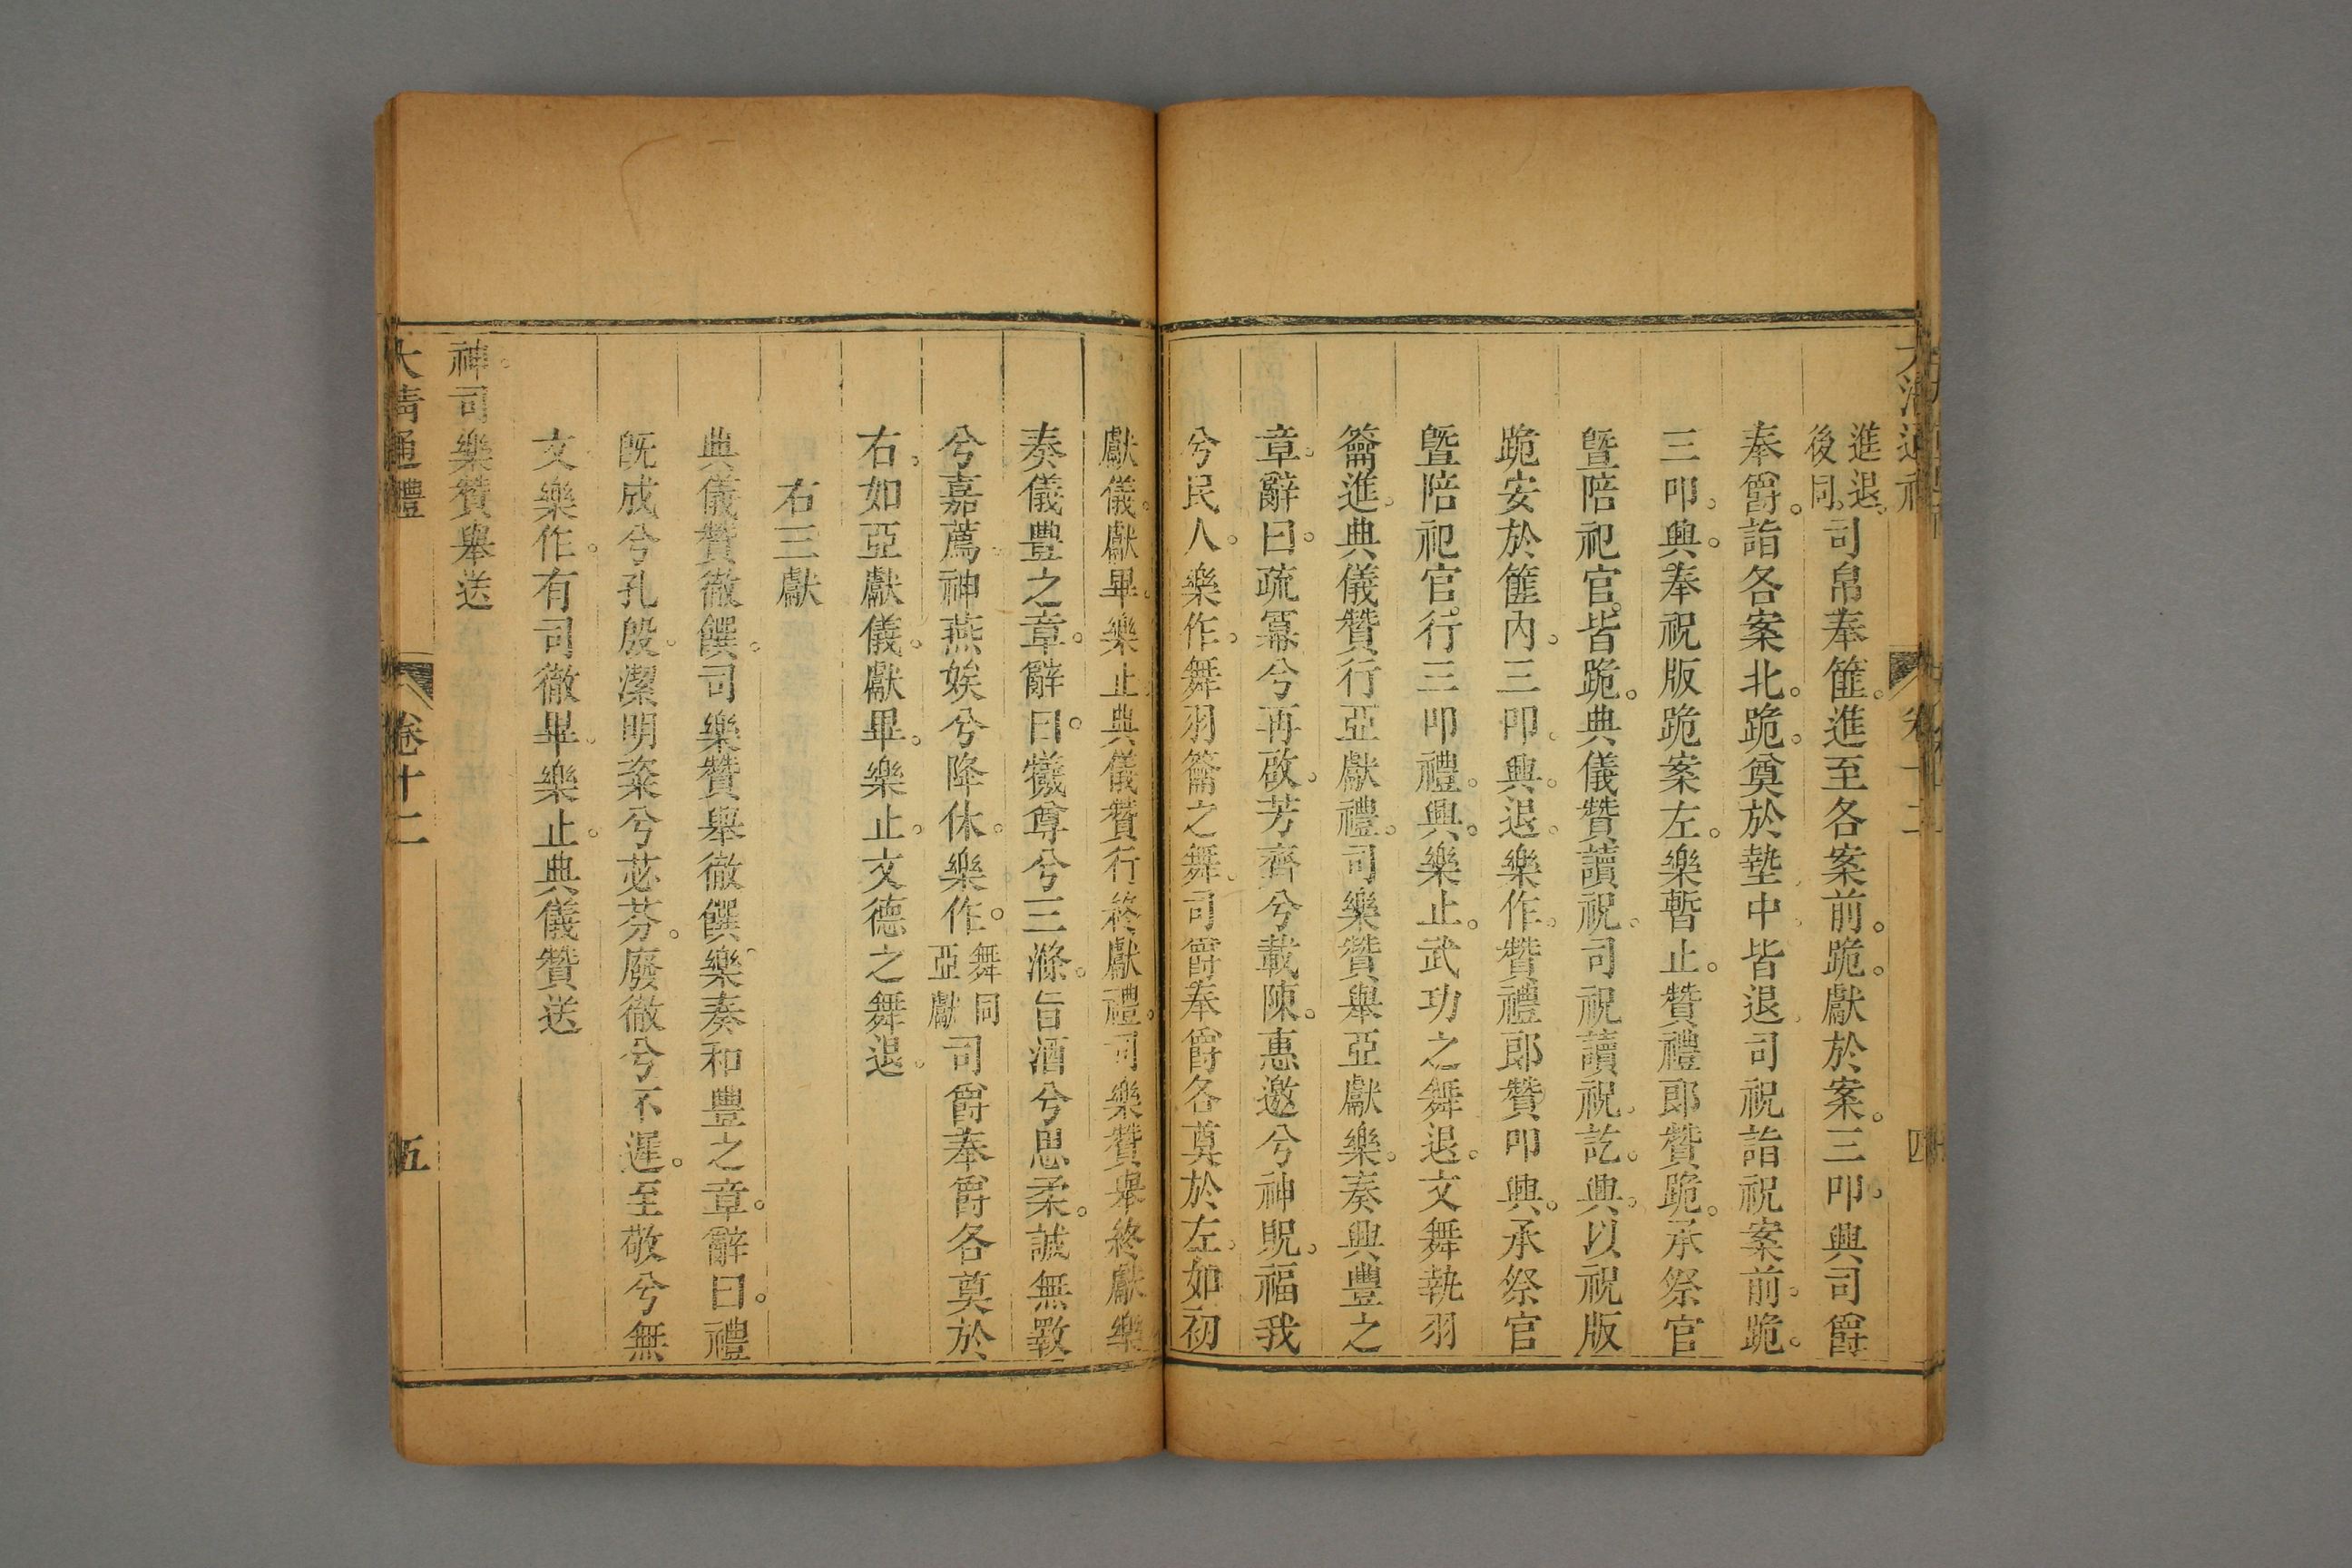 進退。後同。司帛奉篚。進至各案前。跪。獻於案。三叩。興司爵
奉爵。詣各案北。跪。奠於墊中。皆退。司祝詣祝案前。跪。
三叩。興。奉祝版跪案左。樂暫止。贊禮郎贊跪。承祭官
暨陪祀官。皆跪。典儀贊讀祝。司祝讀祝。訖。興。以祝版
跪安於篚內。三叩。興。退。樂作。贊禮郎贊叩興。承祭官
暨陪祀官。行三叩禮。興。樂止。武功之舞退。文舞執羽
籥進。典儀贊行亞獻禮。司樂贊舉亞獻樂。奏興豐之
章。辭曰。疏冪兮再啟。芳齊兮載陳。惠邀兮神貺。福我
兮民人。樂作。舞羽籥之舞。司爵奉爵各奠於左。如初
獻儀。獻畢。樂止。典儀贊行終獻禮。司樂贊舉終獻樂
奏儀豐之章。辭曰。犧尊兮三滌。旨酒兮思柔。誠無斁
兮嘉薦。神燕娭兮降休。樂作。舞同亞獻司爵奉爵各奠於
右。如亞獻儀。獻畢。樂止。文德之舞退。
右三獻
典儀贊徹饌。司樂贊舉徹饌樂。奏和豐之章。辭曰。禮
既成兮孔殷。潔明粢兮苾芬。廢徹兮不遲。至敬兮無
文樂作。有司徹畢。樂止。典儀贊送
神。司樂贊舉送
大清通禮 卷十二 五